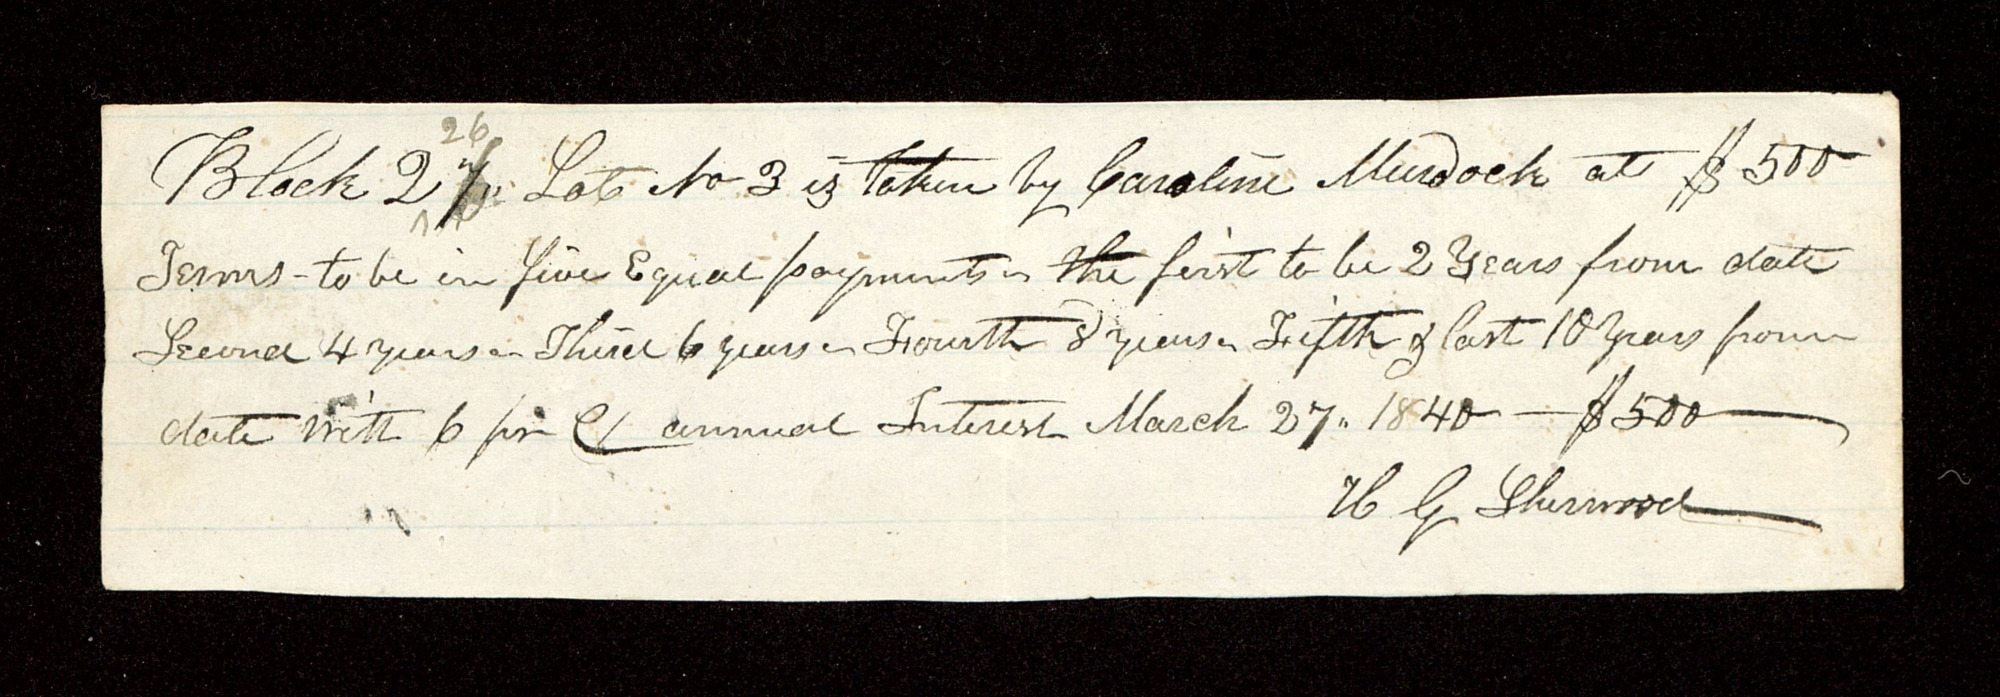 26
Block 27. Lot No 3 is taken by Caroline Murdock at $500
Terms - to be in five Equal payments - the first to be 2 Years from date
Second 4 years - Third 6 years - Fourth 8 years - Fifth & last 10 Years from
date with 6 pr Ct annual Interest March 27. 1840 — $500
H G Sherwood